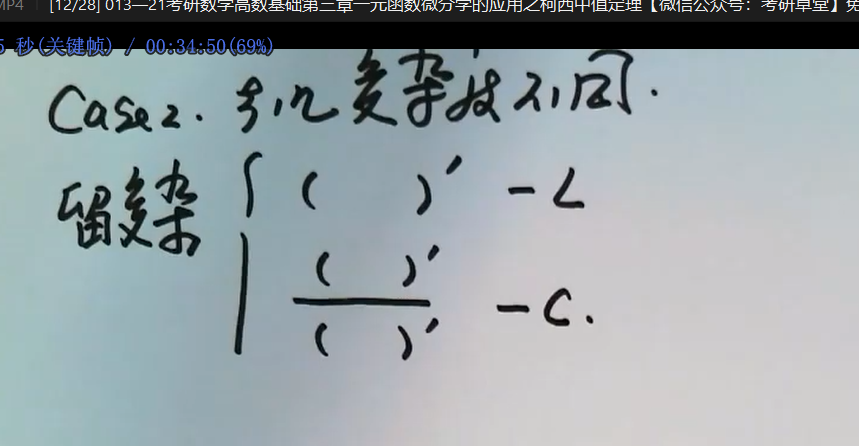 MP4 [12/28] 013—21考研数学高数基础第三章一元函数微分学的应用之柯西中值定理【微信公众号：考研草堂】免
5 秒(关键帧) / 00:34:50(69%)
Case 2. ξ,η 复杂度不同.
留复杂 { ( )′ — L
( )′
—— — C.
( )′